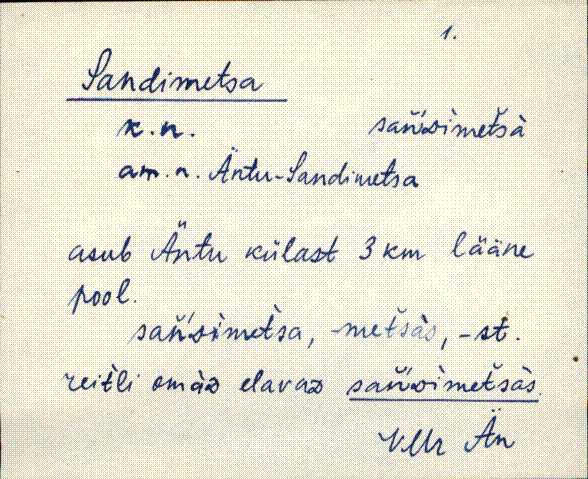 1.
Sandimetsa
k.n. sań'dimetsà
am.n. Äntu-Sandimetsa
asub Äntu külast 3 km lääne
pool.
sań'dimetsa, -metsàs, -st.
reitli omàd elavad sań'dimetsàs.
VMr Än